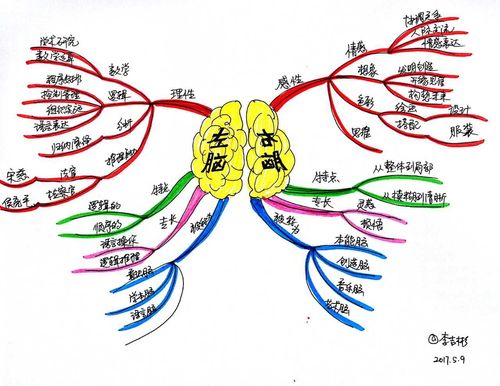 左脑
理性
数学
学术研究
数学运算
逻辑
控制管理
组织安排
语言表达
分析
归纳
推理
法官
侦探
特点
逻辑的
顺序的
专长
语言操作
逻辑推理
被称为
意识脑
学术脑
语言脑
右脑
感性
情感
协调关系
人际交流
情感表达
想象
发明创造
构想未来
色彩
绘画
设计
搭配
服装
思维
特点
从整体到局部
从模糊到清晰
专长
灵感
顿悟
被称为
本能脑
创造脑
音乐脑
艺术脑
2017.5.9